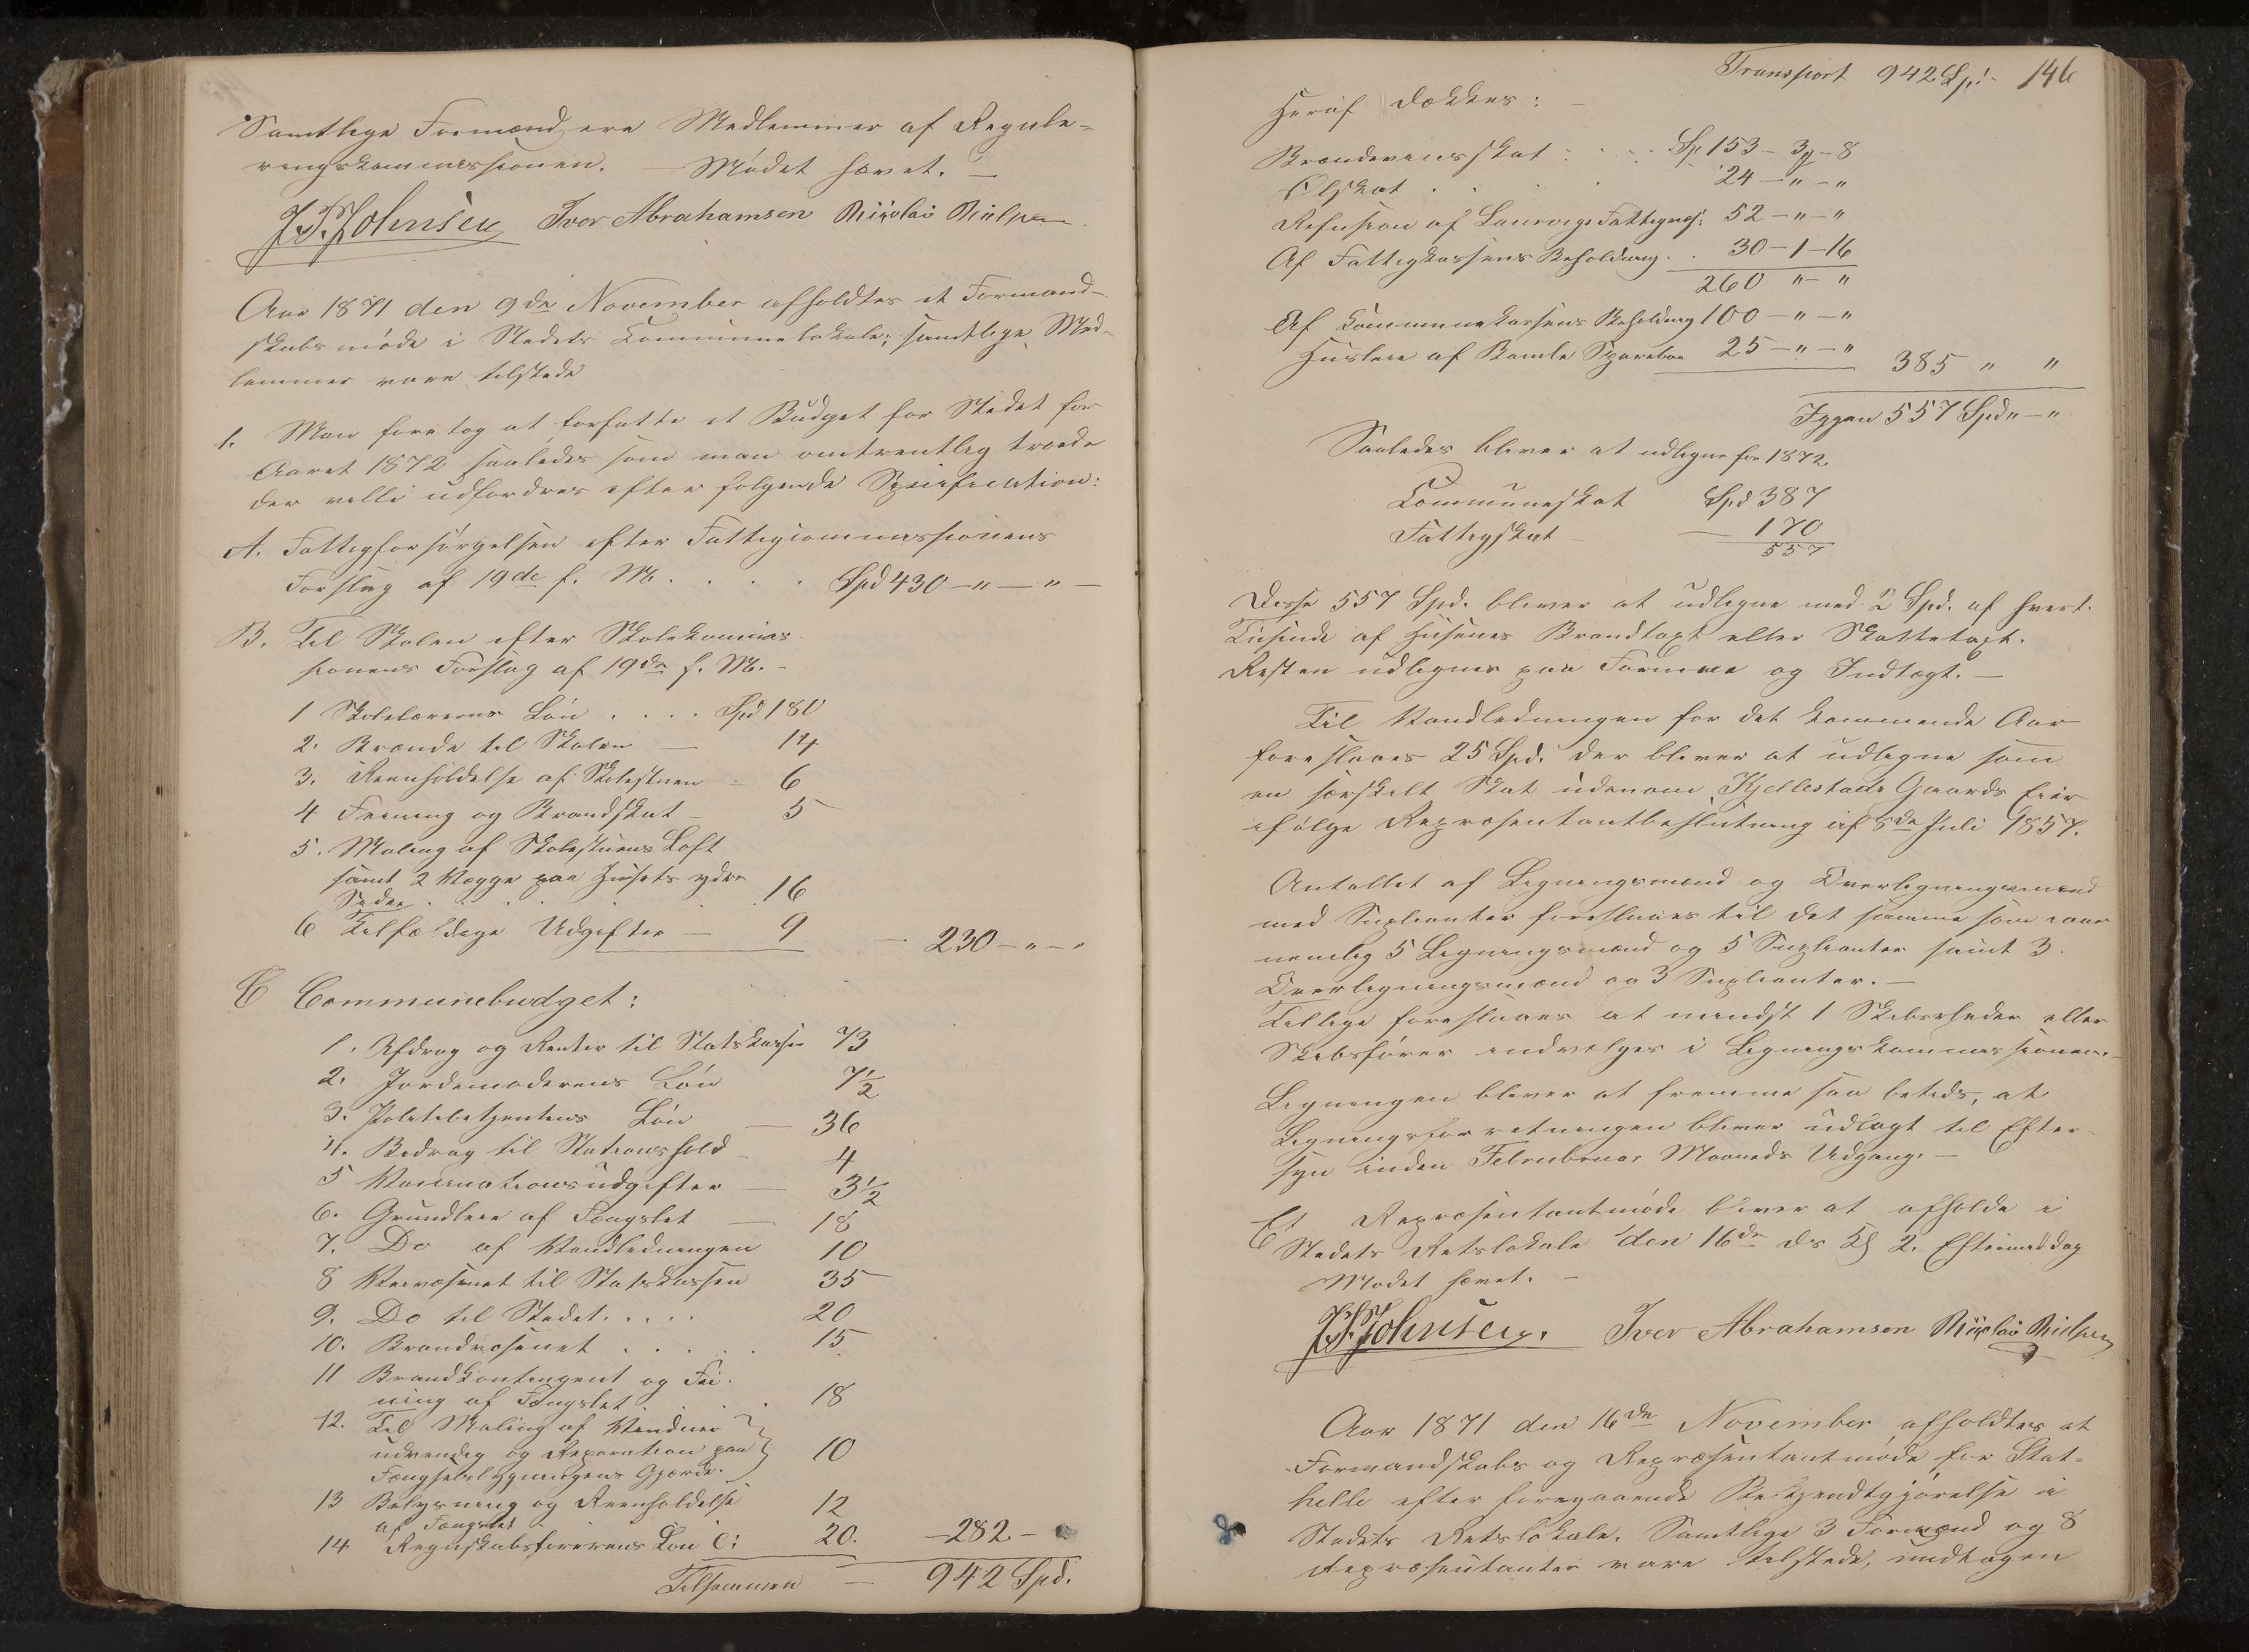 Samtlige Formænd ere Medlemmer af Regule-
ringskommissionen. — Mødet hævet. —
J. P. Johnsen Iver Abrahamsen Nicolai Nielsen
Aar 1871 den 9de November afholdtes et Formand-
skabsmøde i Stedets Communelokale; samtlige Med-
lemmer vare tilstede
1. Man foretog at forfatte et Budget for Stedet for
Aaret 1872 saaledes som man omtrentlig troede
der ville udfordres efter følgende Specification:
A. Fattigforsørgelsen efter Fattigcommissionens
Forslag af 19de f. M. . . . . Spd 430 — " — " —
B. Til Skolen efter Skolekommis-
sionens Forslag af 19de f. M. -
1 Skolelærerens Løn . . . . Spd 180
2. Brænde til Skolen — 14
3. Reenholdelse af Skolestuen - 6
4 Feining og Brandskat - 5
5. Maling af Skolestuens Loft
samt 2 Vægge paa Husets ydre
Sider . . . . . . 16
6 Tilfældige Udgifter — 9 — 230 — " — "
C Communebudget:
1. Afdrag og Renter til Statskassen 73
2. Jordemoderens Løn 7½
3. Politibetjentens Løn — 36
4. Bidrag til Stationshold - 4
5 Vaccinationsudgifter — 3½
6. Grundleie af Fængslet — 18
7. Do af Vandledningen 10
8 Veivæsenet til Statskassen 35
9. Do til Stedet . . . . . 20
10. Brandvæsenet . . . . . 15
11 Brandkontingent og Fei-
ning af Fængslet . . . 18
12. Til Maling af Vinduer
udvendig og Reparation paa 10
Fængselsbygningens Gjærde.
13 Belysning og Reenholdelse 12
af Fængslet -
14 Regnskabsførerens Løn 20. — 282 —
Tilsammen — 942 Spd.
Transport 942 Spd - 146
Heraf dækkes: —
Brændeviinsskat : . . . Sp 153 - 3 - 8
Ølskat . . . 24 — " — "
Refusion af Laurvigs Fattigvæs: 52 — " — "
Af Fattigkassens Beholdning . . 30 — 1 — 16
260 " — "
Af Communekassens Beholdning 100 — " — "
Huusleie af Bamle Sparebank 25 — " — " 385 " "
Igjen 557 Spd " — "
Saaledes bliver at udligne for 1872
Communeskat Spd 387
Fattigskat — 170
557
Disse 557 Spd. bliver at udligne med 2 Spd. af hvert
Tusinde af Husenes Brandtaxt eller Skattetaxt.
Resten udlignes paa Formue og Indtægt. —
Til Vandledningen for det kommende Aar
foreslaaes 25 Spd. der bliver at udligne som
en særskilt Skat udenom Kjellestads Gaards Eier
ifølge Repræsentantbeslutning af 8de Juli 1857.
Antallet af Ligningsmænd og Overligningsmænd
med Suplianter foreslaaes til det samme som iaar
nemlig 5 Ligningsmænd og 5 Suplianter samt 3
Overligningsmænd og 3 Suplianter. —
Tillige foreslaaes at mindst 1 Skibsrheder eller
Skibsfører indvælges i Ligningskommissionen. —
Ligningen bliver at fremme saa betids, at
Ligningsforretningen bliver udlagt til Efter-
syn inden Februar Maaneds Udgang. —
Et Repræsentantmøde bliver at afholde i
Stedets Retslokale den 16de ds Kl 2. Eftermiddag
Mødet hævet. —
J. P. Johnsen. Iver Abrahamsen Nicolai Nielsen
Aar 1871 den 16de November afholdtes et
Formandskabs og Repræsentantmøde for Stat-
helle efter foregaaende Bekjendtgjørelse i
Stedets Retslokale. Samtlige 3 Formænd og 8
Repræsentanter vare tilstede, undtagen